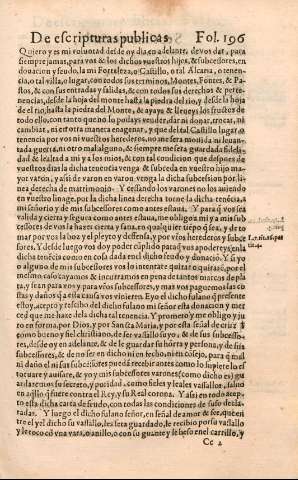 De escripturas publicas. Fol. 196
Quiero y es mi voluntad desde oy dia, en adelante, de vos dar, para
siempre jamas, para vos & los dichos vuestros hijos, & subcessores, en
donacion y feudo, la mi Fortaleza, o Castillo, o tal Alcaria, o tenen-
cia, o tal villa, o lugar, con todos sus terminos, Montes, Fontes, & Pa-
stos, & con sus entradas, y salidas, & con todos sus derechos & perte-
nencias, desde la hoja del monte hasta la piedra del rio, y desde la hoja
del rio, hasta la piedra del Monte, & ayays & lleueys los fructos de
todo ello, con tanto que no lo podays vender, dar ni donar, trocar, ni
cambiar, ni en otra manera enagenar, y que del tal Castillo lugar o
tenencia por vos ni vuestros herederos, no me sera mouida ni leuan-
tada guerra, ni otro mal alguno, & siempre me sera guardada fideli-
dad & lealtad a mi y a los mios, & con tal condicion que despues de
vuestros dias la dicha tenencia venga & subceda en vuestro hijo ma-
yor varon, y assi de varon en varon venga la dicha subcession por li-
nea derecha de matrimonio. Y cessando los varones no los auiendo
en vuestro linage, por la dicha linea derecha torne la dicha tenécia, a
mi señorio y de mis subcessores como antes estaua. Y para q̃ vos sea
valida y cierta y segura como antes estaua, me obligo a mi y a mis sub
cessores de vos la hazer cierta, y sana, en qualquier tiẽpo q̃ sea, y de to
mar por vos la boz y el pleyto y deffensa, y por vr̃os herederos y subce
sores. Y desde luego vos doy poder cũplido para q̃ vos apodereys en la
dicha tenẽcia como en cosa dada en el dicho feudo y donacion. Y si yo
o alguno de mi subcessores vos lo intentare quitar o quitare, por el
mesmo caso yo y incurramos en pena de tantos marcos de pla
ta, y sean para vos y para vr̃os subcessores, y mas vos paguemos las co
stas y daños q̃ a esta causa vos vinieren. E yo el dicho fulano q̃ presente
estoy, acepto y rescibo del dicho fulano mi señor esta donacion y mer
ced que me haze de la dicha tal tenencia. Y prometo y me obligo y ju
ro en forma, por Dios, y por Sancta Maria, y por esta señal de cruz
como bueno y fiel christiano, de ser vassallo suyo, & de sus subcesso-
res, desde oy en adelante, & de le guardar su hõrra y persona, y de sus
subcessores, & de no ser en dicho ni en fecho, ni en cõsejo, para q̃ mal
ni daño el ni sus subcessores puedã rescebir antes como lo supiere lo es
toruare y auisare, & yo y mis subcessores varones (como dicho es) gu
ardaremos su secreto, y puridad, como fieles y leales vassallos, saluo
en aq̃llo q̃ fuere contra el Rey, y su Real corona. Y assi en todo acep-
to esta dicha carta de feudo, con todas las condiciones de suso decla-
radas. Y luego el dicho fulano señor, en señal de amor & fee, que en
tre el y el dicho su vassallo, les sera guardado, le recibio por su vassallo
y le toco cõ vna vara, o anillo, o con su guante y le beso en el carrillo, y
Cc 2